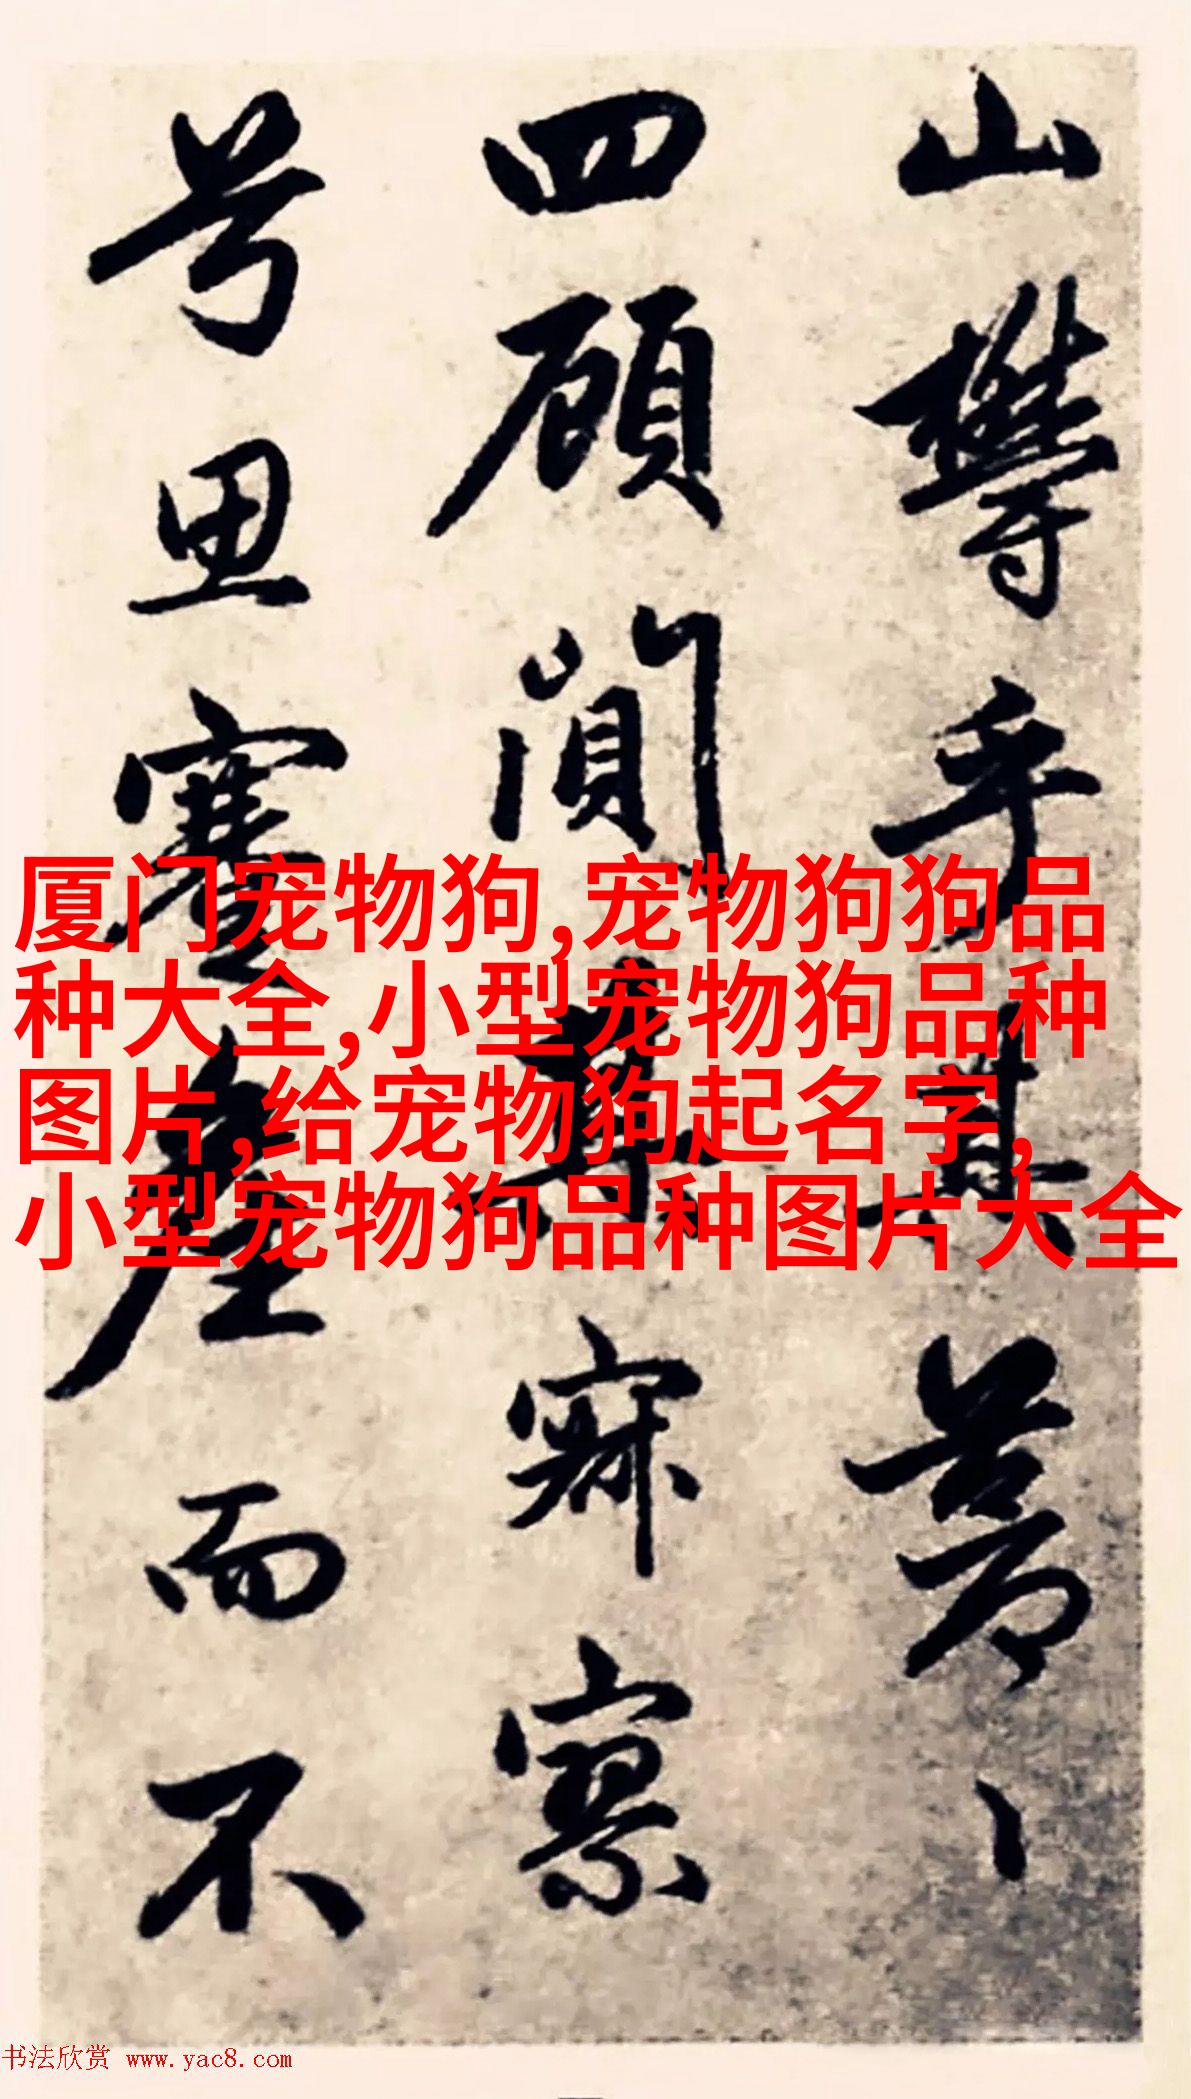 山礬乎其菩〻
四顧闃其寂寥
兮思寥廓而不
厦门宠物狗,宠物狗狗品
种大全,小型宠物狗品种
图片,给宠物狗起名字,
小型宠物狗品种图片大全
书法欣赏 www.yac8.com